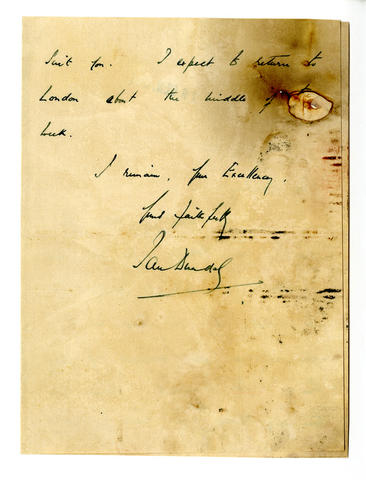 Suit you. I expect to return to
London about the middle of
week.
I remain, your Excellency,
Yours faithfully
Ian